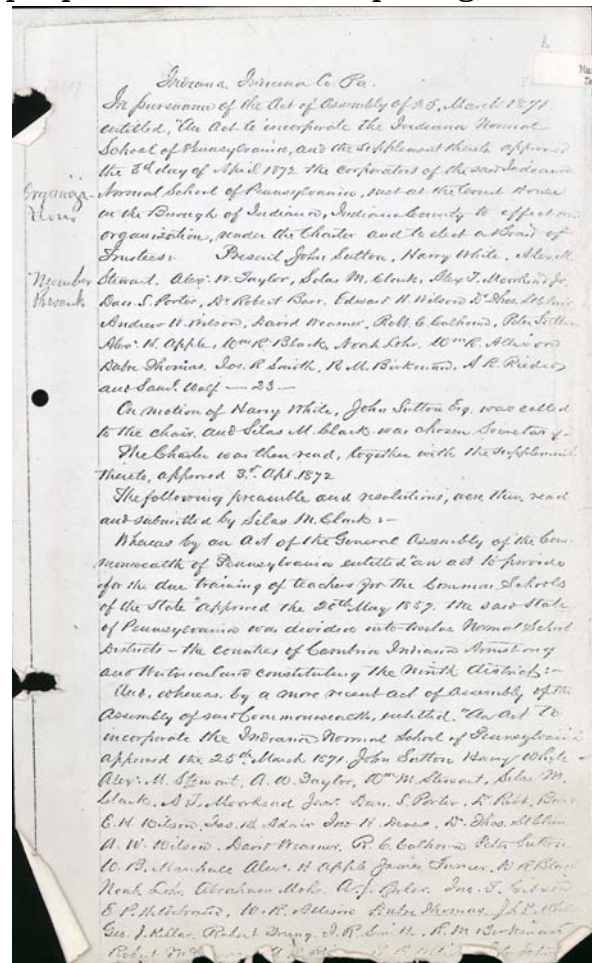 Indiana, Indiana Co. Pa.
In pursuance of the Act of Assembly of 25, March 1871
entitled, "An Act to incorporate the Indiana Normal
School of Pennsylvania, and the Supplement thereto approved
the 3d day of April 1872 the corporators of the said Indiana
Organiza- Normal School of Pennsylvania, met at the Court House
tion in the Borough of Indiana, Indiana County to effect an
organization, under the Charter and to elect a Board of
Trustees: Present John Sutton, Harry White, Alex. M.
Members Stewart. Alex. W. Taylor, Silas M. Clark, Alex T. Moorhead Jr.
Present Dan. S. Porter, Dr Robert Barr. Edward H. Wilson Dr Thos. St.Clair
Andrew W. Wilson, David Weamer, Robt. C. Calhoun, Peter Sutton
Alex. H. Apple, Wm R. Black, Noah Lohr. Wm R. Allison
Thomas. Jos. R. Smith, R. M. Birkman, A. R.
and Saml. Wolf — 23 —
On motion of Harry White, John Sutton Esq. was called
to the chair and Silas M. Clark was chosen Secretary.
The Charter was then read, together with the supplement
thereto, approved 3d. Apl. 1872
The following preamble and resolutions, were then read
and submitted by Silas M. Clark :-
Whereas by an Act of the General Assembly of the Com-
monwealth of Pennsylvania entitled "an act to provide
for the due training of teachers for the Common Schools
of the State" approved the 20th May 1857. the said State
of Pennsylvania was divided into twelve Normal School
Districts - the counties of Cambria Indiana Armstrong
and Westmoreland constituting the Ninth district :-
And, whereas, by a more recent act of Assembly of the
Assembly of said Commonwealth, entitled. "An Act to
incorporate the Indiana Normal School of Pennsylvania
approved the 25th March 1871. John Sutton Harry White
Alex. M. Stewart, A. W. Taylor, Wm M. Stewart, Silas M.
Clark, A. T. Moorhead Jr. Dan. S. Porter, Dr Robt. Barr
E. H. Wilson, Jos. Adair Dr. Thos. St.Clair
A. W. Wilson. David Weamer, R. C. Calhoun Peter Sutton
W. B. Marshall Alex. H Apple James Turner, W R Black
Noah Lohr. Abraham Mohr. A. J. T. Gibson
E. P. Hildebrand, W. R. Allison Thomas,
Geo. J. Killar, Robert J. R. Smith, R. M. Birkman
Robert